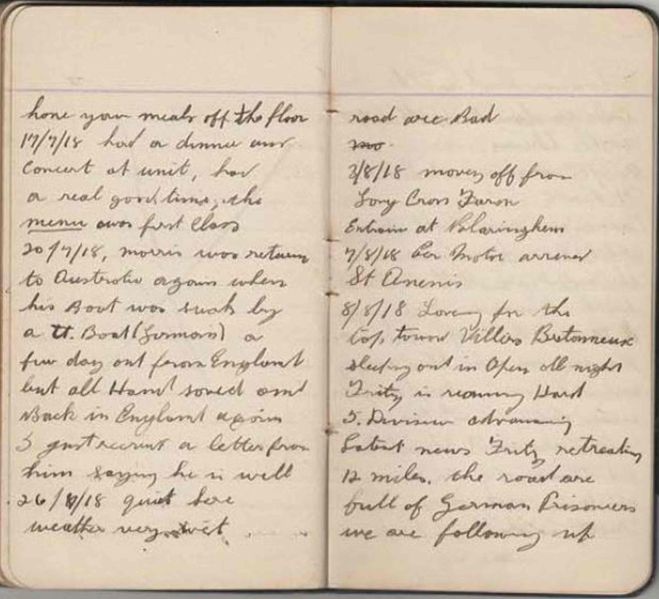 have your meals off the floor
17/7/18 had a dinner and
Concert at unit, had
a real good time, the
menu was first Class
20/7/18, morris was return
to Australia again when
his Boat was sunk by
a U. Boat (Germans) a
few day out from England
but all Hand saved and
Back in England again
I just receive a letter from
him saying he is well
26/7/18 quiet here
weather very wet
road are Bad
3/8/18 moving off from
Long Cross Farm
Entrain at Blaringhem
7/8/18 Per Motor arrived
St
8/8/18 Leaving for the
top toward Villers Bretonneux
sleeping out in Open all night
Fritz is running Hard
5. Division advancing
Latest news Fritz retreating
12 miles. the road are
full of German Prisoners
we are following up